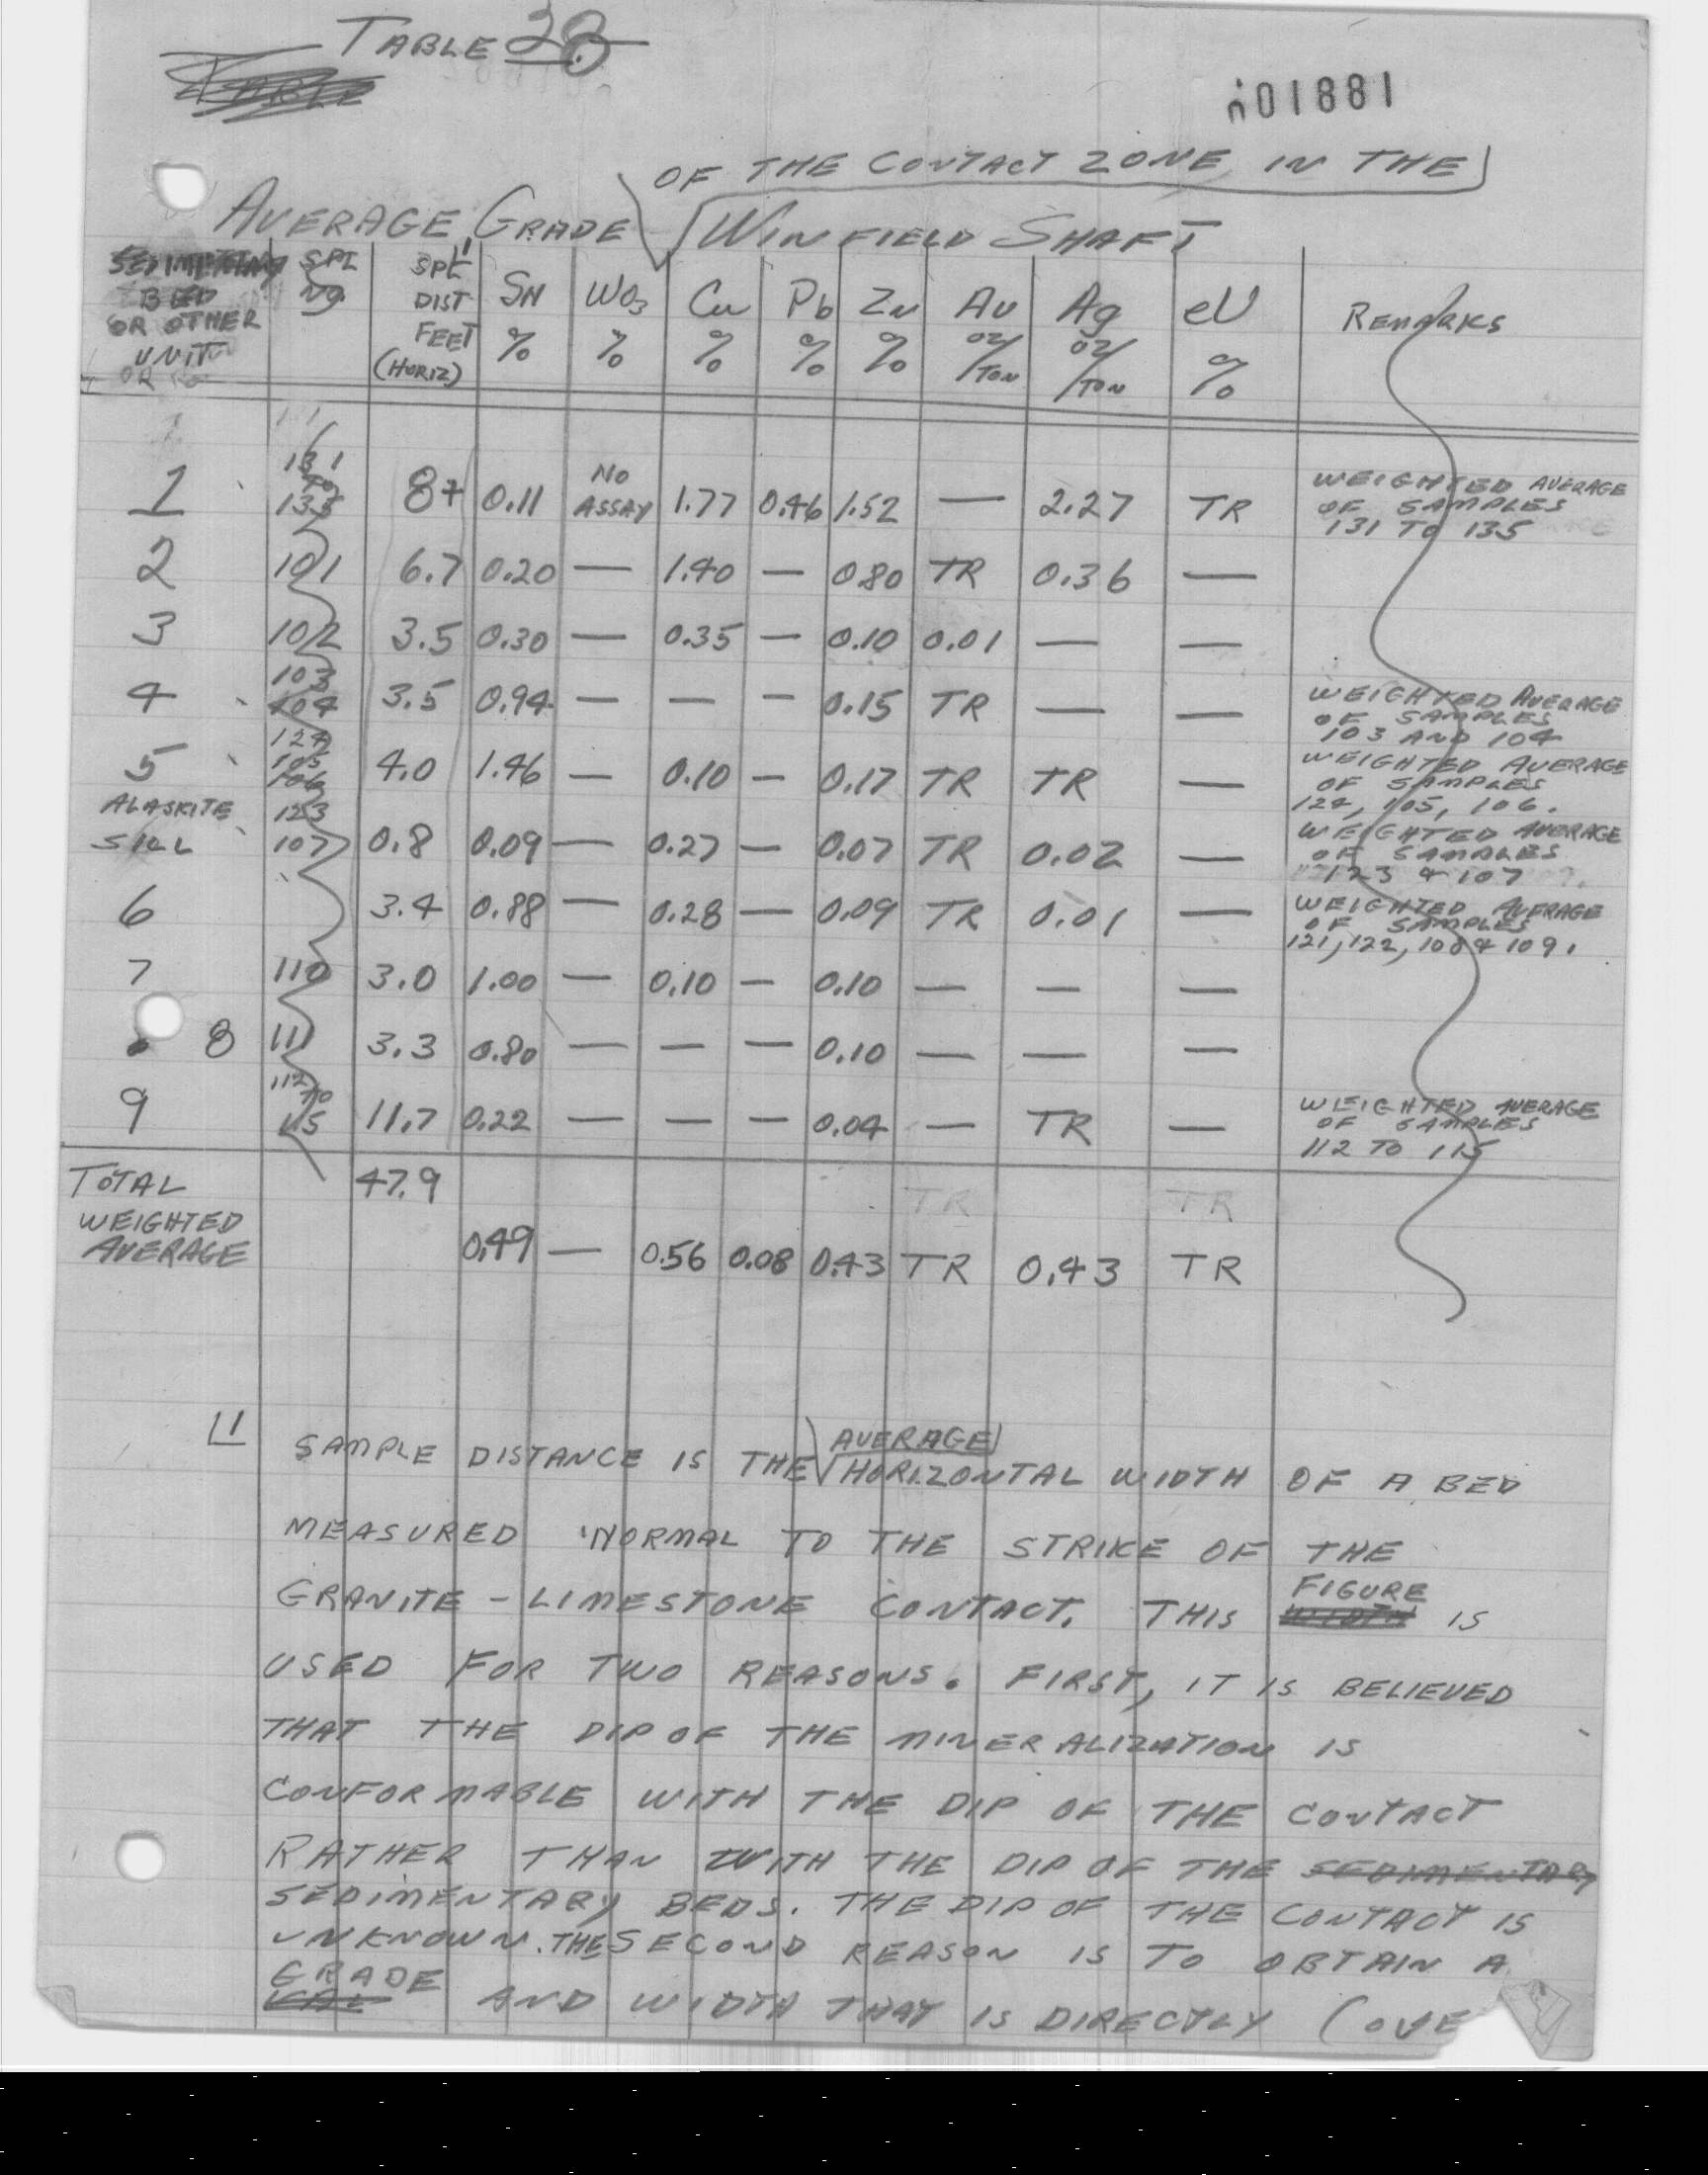 TABLE 28
001881
OF THE CONTACT ZONE IN THE
AVERAGE GRADE WINFIELD SHAFT
SEDIMENTARY BED OR OTHER UNIT | SPL NO. | SPL DIST FEET (HORIZ) 1 | SN % | WO3 % | Cu % | Pb % | ZN % | AU OZ/TON | Ag OZ/TON | eU % | REMARKS
1 | 131 TO 135 | 8+ | 0.11 | NO ASSAY | 1.77 | 0.46 | 1.52 | — | 2.27 | TR | WEIGHTED AVERAGE OF SAMPLES 131 TO 135
2 | 101 | 6.7 | 0.20 | — | 1.40 | — | 0.80 | TR | 0.36 | —
3 | 102 | 3.5 | 0.30 | — | 0.35 | — | 0.10 | 0.01 | — | —
4 | 103 104 | 3.5 | 0.94 | — | — | — | 0.15 | TR | — | — | WEIGHTED AVERAGE OF SAMPLES 103 AND 104
5 | 124 105 106 | 4.0 | 1.46 | — | 0.10 | — | 0.17 | TR | TR | — | WEIGHTED AVERAGE OF SAMPLES 124, 105, 106.
ALASKITE SILL | 123 107 | 0.8 | 0.09 | — | 0.27 | — | 0.07 | TR | 0.02 | — | WEIGHTED AVERAGE OF SAMPLES 123 & 107
6 | 3.4 | 0.88 | — | 0.28 | — | 0.09 | TR | 0.01 | — | WEIGHTED AVERAGE OF SAMPLES 121, 122, 108 & 109.
7 | 110 | 3.0 | 1.00 | — | 0.10 | — | 0.10 | — | — | —
8 | 111 | 3.3 | 0.80 | — | — | — | 0.10 | — | — | —
9 | 112 TO 115 | 11.7 | 0.22 | — | — | — | 0.04 | — | TR | — | WEIGHTED AVERAGE OF SAMPLES 112 TO 115
TOTAL | 47.9 | TR | TR
WEIGHTED AVERAGE | 0.49 | — | 0.56 | 0.08 | 0.43 | TR | 0.43 | TR
1 SAMPLE DISTANCE IS THE AVERAGE HORIZONTAL WIDTH OF A BED
MEASURED NORMAL TO THE STRIKE OF THE
GRANITE - LIMESTONE CONTACT. THIS WIDTH FIGURE IS
USED FOR TWO REASONS. FIRST, IT IS BELIEVED
THAT THE DIP OF THE MINERALIZATION IS
CONFORMABLE WITH THE DIP OF THE CONTACT
RATHER THAN WITH THE DIP OF THE SEDIMENTARY
SEDIMENTARY BEDS. THE DIP OF THE CONTACT IS
UNKNOWN. THE SECOND REASON IS TO OBTAIN A
GRADE AND WIDTH THAT IS DIRECTLY (OVE